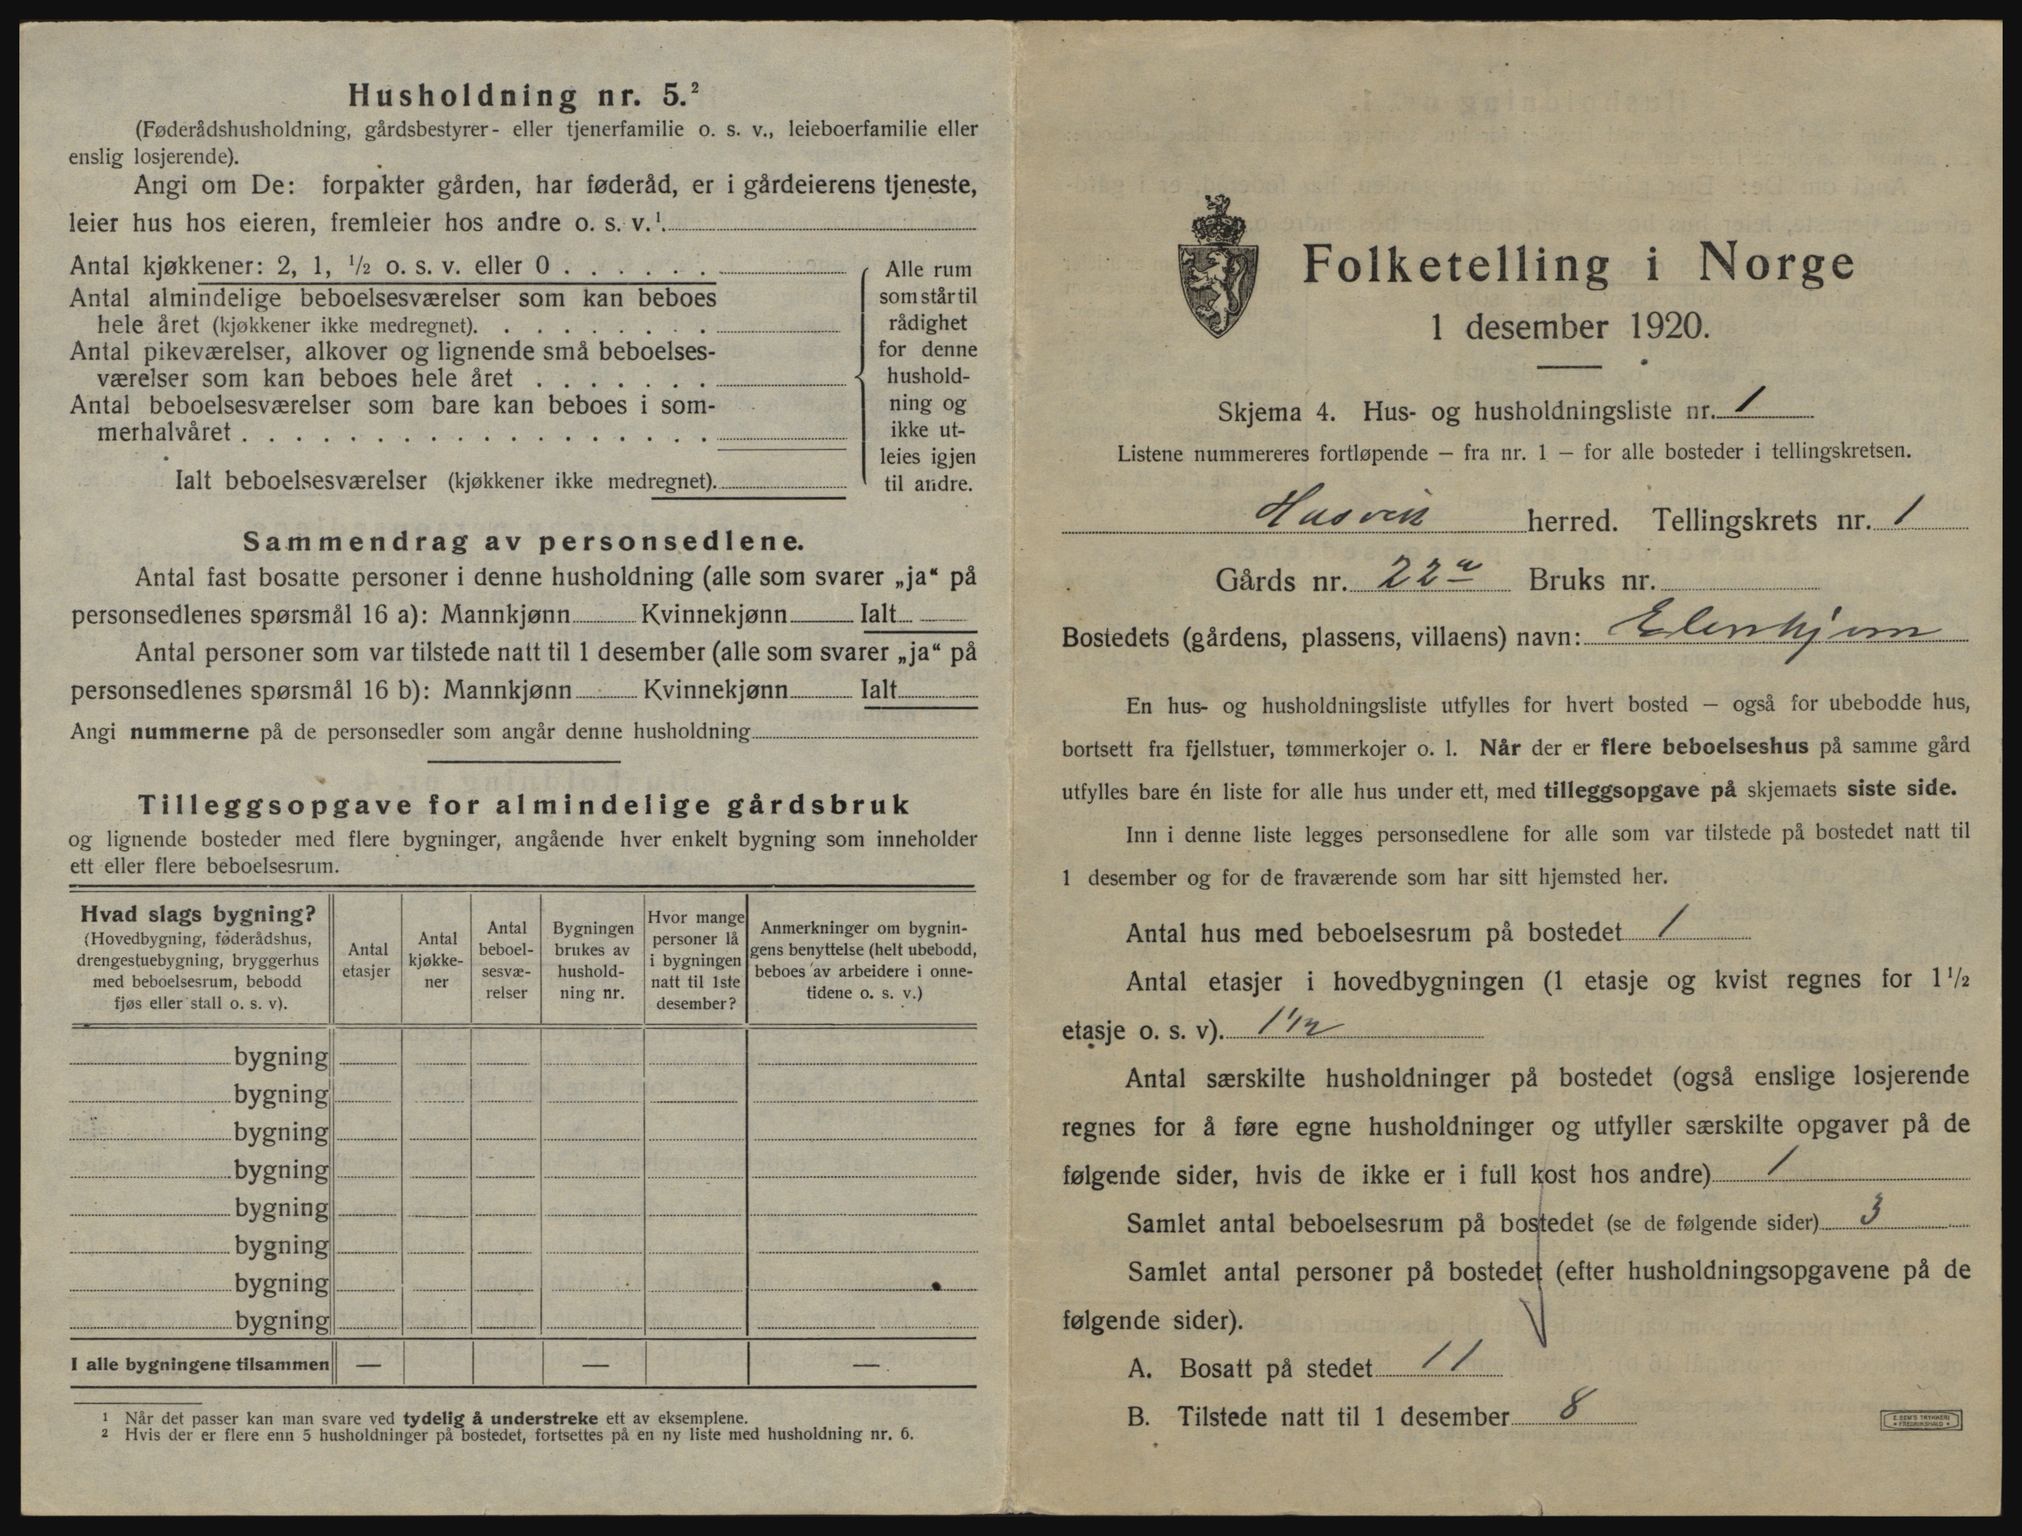 Husholdning nr. 5.²
(Føderådshusholdning, gårdsbestyrer- eller tjenerfamilie o. s. v., leieboerfamilie eller
enslig losjerende).
Angi om De: forpakter gården, har føderåd, er i gårdeierens tjeneste,
leier hus hos eieren, fremleier hos andre o. s. v.¹
Antal kjøkkener: 2, 1, ½ o. s. v. eller 0 . . . . . .
Antal almindelige beboelsesværelser som kan beboes
hele året (kjøkkener ikke medregnet). . . . . . . . .
Antal pikeværelser, alkover og lignende små beboelses-
værelser som kan beboes hele året . . . . . . .
Antal beboelsesværelser som bare kan beboes i som-
merhalvåret . . . . . . . . . . . . . . . . . .
Ialt beboelsesværelser (kjøkkener ikke medregnet).
Alle rum
som står til
rådighet
for denne
hushold-
ning og
ikke ut-
leies igjen
til andre.
Sammendrag av personsedlene.
Antal fast bosatte personer i denne husholdning (alle som svarer „ja“ på
personsedlenes spørsmål 16 a): Mannkjønn Kvinnekjønn Ialt
Antal personer som var tilstede natt til 1 desember (alle som svarer „ja“ på
personsedlenes spørsmål 16 b): Mannkjønn Kvinnekjønn Ialt
Angi nummerne på de personsedler som angår denne husholdning
Tilleggsopgave for almindelige gårdsbruk
og lignende bosteder med flere bygninger, angående hver enkelt bygning som inneholder
ett eller flere beboelsesrum.
Hvad slags bygning?
(Hovedbygning, føderådshus,
drengestuebygning, bryggerhus
med beboelsesrum, bebodd
fjøs eller stall o. s. v).
Antal
etasjer
Antal
kjøkke-
ner
Antal
beboel-
sesvæ-
relser
Bygningen
brukes av
hushold-
ning nr.
Hvor mange
personer lå
i bygningen
natt til 1ste
desember?
Anmerkninger om bygnin-
gens benyttelse (helt ubebodd,
beboes av arbeidere i onne-
tidene o. s. v.)
bygning
bygning
bygning
bygning
bygning
bygning
bygning
bygning
I alle bygningene tilsammen — — —
¹ Når det passer kan man svare ved tydelig å understreke ett av eksemplene.
² Hvis der er flere enn 5 husholdninger på bostedet, fortsettes på en ny liste med husholdning nr. 6.
Folketelling i Norge
1 desember 1920.
Skjema 4. Hus- og husholdningsliste nr. 1
Listene nummereres fortløpende – fra nr. 1 – for alle bosteder i tellingskretsen.
Hasvik herred. Tellingskrets nr. 1
Gårds nr. 22a Bruks nr.
Bostedets (gårdens, plassens, villaens) navn:
En hus- og husholdningsliste utfylles for hvert bosted – også for ubebodde hus,
bortsett fra fjellstuer, tømmerkojer o. l. Når der er flere beboelseshus på samme gård
utfylles bare én liste for alle hus under ett, med tilleggsopgave på skjemaets siste side.
Inn i denne liste legges personsedlene for alle som var tilstede på bostedet natt til
1 desember og for de fraværende som har sitt hjemsted her.
Antal hus med beboelsesrum på bostedet 1
Antal etasjer i hovedbygningen (1 etasje og kvist regnes for 1½
etasje o. s. v). 1½
Antal særskilte husholdninger på bostedet (også enslige losjerende
regnes for å føre egne husholdninger og utfyller særskilte opgaver på de
følgende sider, hvis de ikke er i full kost hos andre) 1
Samlet antal beboelsesrum på bostedet (se de følgende sider) 3
Samlet antal personer på bostedet (efter husholdningsopgavene på de
følgende sider).
A. Bosatt på stedet 11
B. Tilstede natt til 1 desember 8
E. SEM'S TRYKKERI
• FREDRIKSHALD •